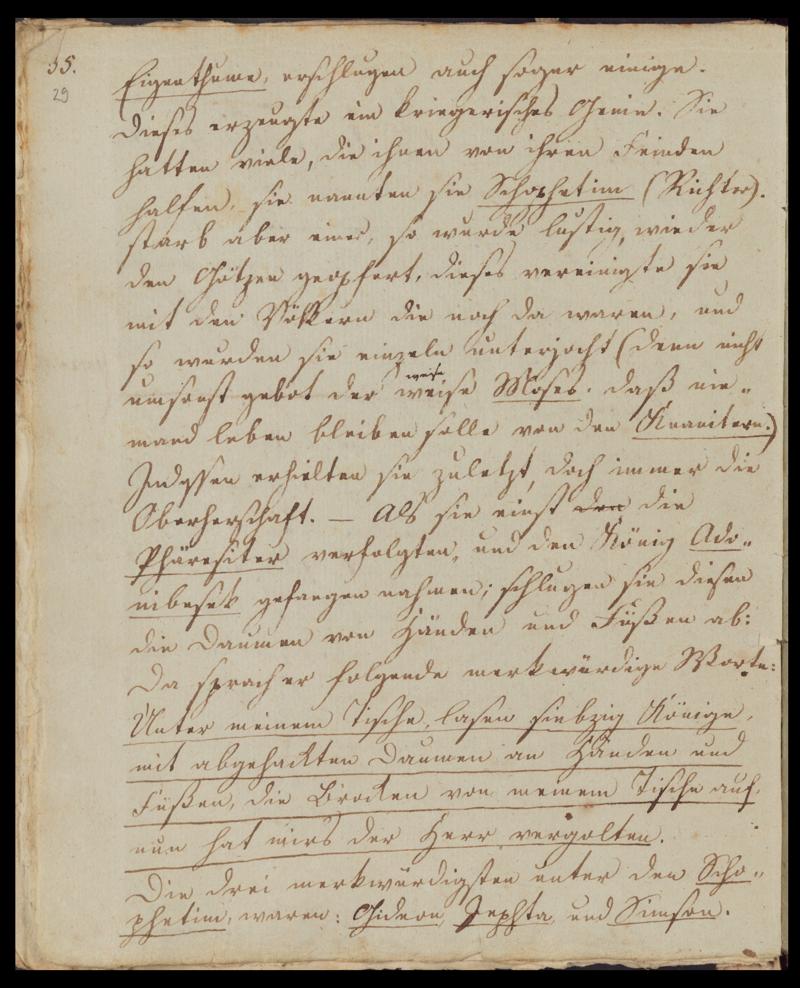 35.
29
Eigenthume, erschlugen auch sogar einige.
Dieses erzeugte ein kriegerisches Genie. Sie
hatten viele, die ihnen von ihren Feinden
halfen, sie nannten sie Schophetim (Richter).
starb aber einer, so wurde lustig wieder
den Götzen geopfert, dieses vereinigte sie
mit den Völkern die noch da waren, und
so wurden sie einzeln unterjocht (denn nicht
weise
umsonst gebot der weise Moses. daß nie„
mand leben bleiben solle von den Knanitern.)
Indessen erhielten sie zuletzt, doch immer die
Oberherschaft. — Als sie einst den die
Phäresiter verfolgten, und den König Ado„
nibesek gefangen nahmen; schlugen sie diesen
die Daumen von Händen und Füßen ab:
Da sprach er folgende merkwürdige Worte:
Unter meinem Tische, lasen siebzig Könige,
mit abgehackten Daumen an Händen und
Füßen, die Brocken von meinem Tische auf,
nun hat mirs der Herr vergolten.
Die drei merkwürdigsten unter den Scho„
phetim, waren: Gideon, Jephta, und Simson.